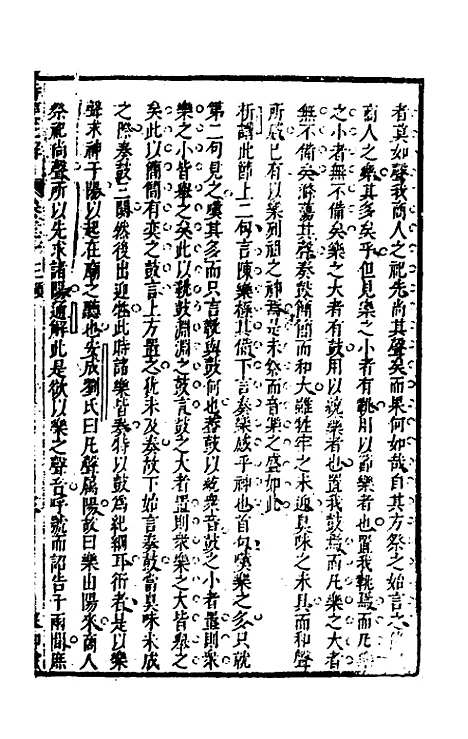 者莫如聲我商人之祀先尚其聲矣而果何如哉自其方祭之始言之
商人之樂其多矣乎但見樂之小者有鞉用以節樂者也置我鞉焉而凡樂
之小者無不備矣樂之大者有鼓用以統樂者也置我鼓焉而凡樂之大者
無不備矣滌蕩其聲奏鼓簡簡而和大雖牲牢之未迎臭味之未具而和聲
所感已有以樂列祖之神焉是未祭而音樂之盛如此
析講此節上二句言陳樂極其備下言奏樂感乎神也首句嘆樂之多只就
第二句見之嘆其多而只言鞉與鼓何也蓋鼓以統衆音鼓之小者置則衆
樂之小皆舉之矣此以鞉鼓淵淵之鼓言鼓之大者置則衆樂之大皆舉之
矣此以簡簡有奕之鼓言上方置之猶未及奏故下始言奏鼓當臭味未成
之際奏鼓三闋然後出迎牲此時諸樂皆奏特以鼓為紀綱耳衎者是以樂
聲求神于陽以起在廟之聽也安成劉氏曰凡聲屬陽故曰樂由陽來商人
祭祀尚聲所以先求諸陽通解此是欲以樂之聲音呼號而詔告于兩間庶